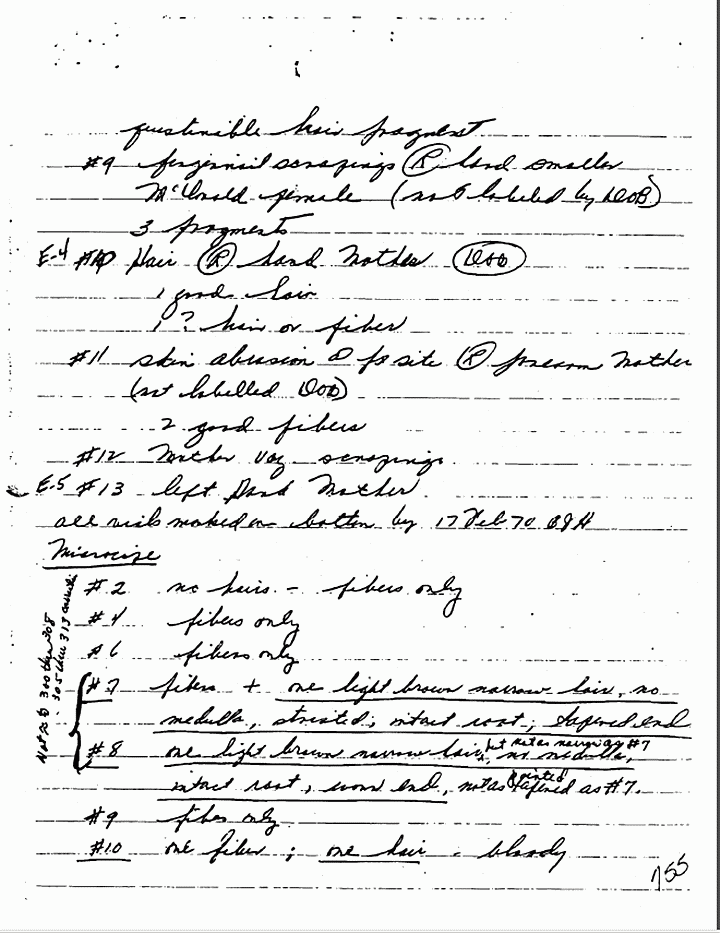 questionible hair fragment
#9 fingernail scrapings (R) hand smaller
McDonald female (not labeled by DOB)
3 fragments
E-4 #10 Hair (R) hand Mother
1 good hair
1 ? hair or fiber
#11 skin abrasion site (R) forearm Mother
(not labelled
2 good fibers
#12 Mother vag scrapings
E-5 #13 left hand Mother
all vials marked on bottom by 17 Feb 70
Microscope
#2 no hairs - fibers only
#4 fibers only
#6 fibers only
#7 fibers + one light brown narrow hair, no
medulla, striated; intact root; tapered end
#8 one light brown narrow hair, but not as narrow as #7 no medulla,
intact root, worn end, not as pointed tapered as #7.
#9 fibers only
#10 one fiber ; one hair - bloody
300 thru 308
305 thru 313
155